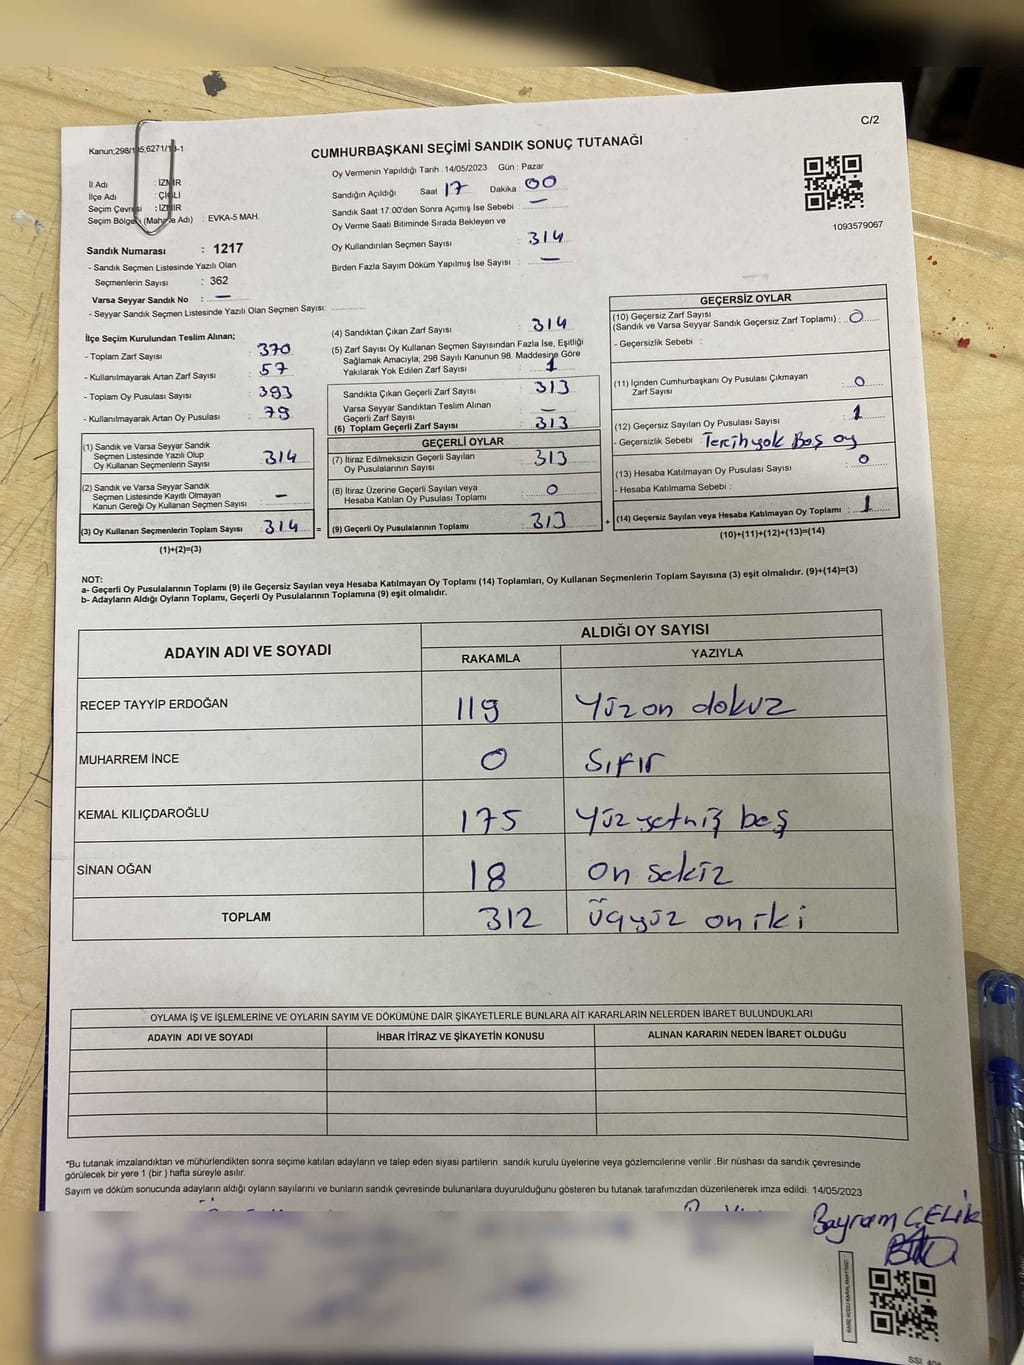 C/2
Kanun;298/105,6271/19-1
CUMHURBAŞKANI SEÇİMİ SANDIK SONUÇ TUTANAĞI
İl Adı : İZMİR
İlçe Adı : ÇİĞLİ
Seçim Çevresi : İZMİR
Seçim Bölgesi (Mahalle Adı) : EVKA-5 MAH.
Sandık Numarası : 1217
- Sandık Seçmen Listesinde Yazılı Olan
Seçmenlerin Sayısı : 362
Varsa Seyyar Sandık No : —
- Seyyar Sandık Seçmen Listesinde Yazılı Olan Seçmen Sayısı:
Oy Vermenin Yapıldığı Tarih 14/05/2023 Gün : Pazar
Sandığın Açıldığı Saat 17 Dakika : 00
Sandık Saat 17:00'den Sonra Açımış İse Sebebi : —
Oy Verme Saati Bitiminde Sırada Bekleyen ve
Oy Kullandırılan Seçmen Sayısı : 314
Birden Fazla Sayım Döküm Yapılmış İse Sayısı : —
1093579067
İlçe Seçim Kurulundan Teslim Alınan;
- Toplam Zarf Sayısı : 370
- Kullanılmayarak Artan Zarf Sayısı : 57
- Toplam Oy Pusulası Sayısı : 393
- Kullanılmayarak Artan Oy Pusulası : 79
(1) Sandık ve Varsa Seyyar Sandık
Seçmen Listesinde Yazılı Olup
Oy Kullanan Seçmenlerin Sayısı : 314
(2) Sandık ve Varsa Seyyar Sandık
Seçmen Listesinde Kayıtlı Olmayan
Kanun Gereği Oy Kullanan Seçmen Sayısı : —
(3) Oy Kullanan Seçmenlerin Toplam Sayısı : 314 =
(1)+(2)=(3)
(4) Sandıktan Çıkan Zarf Sayısı : 314
(5) Zarf Sayısı Oy Kullanan Seçmen Sayısından Fazla İse, Eşitliği
Sağlamak Amacıyla; 298 Sayılı Kanunun 98. Maddesine Göre
Yakılarak Yok Edilen Zarf Sayısı : 1
Sandıkta Çıkan Geçerli Zarf Sayısı : 313
Varsa Seyyar Sandıktan Teslim Alınan
Geçerli Zarf Sayısı : —
(6) Toplam Geçerli Zarf Sayısı : 313
GEÇERLİ OYLAR
(7) İtiraz Edilmeksizin Geçerli Sayılan
Oy Pusulalarının Sayısı : 313
(8) İtiraz Üzerine Geçerli Sayılan veya
Hesaba Katılan Oy Pusulası Toplamı : 0
(9) Geçerli Oy Pusulalarının Toplamı : 313 +
GEÇERSİZ OYLAR
(10) Geçersiz Zarf Sayısı
(Sandık ve Varsa Seyyar Sandık Geçersiz Zarf Toplamı) : 0
- Geçersizlik Sebebi :
(11) İçinden Cumhurbaşkanı Oy Pusulası Çıkmayan
Zarf Sayısı : 0
(12) Geçersiz Sayılan Oy Pusulası Sayısı : 1
- Geçersizlik Sebebi : Tercih yok Boş oy
(13) Hesaba Katılmayan Oy Pusulası Sayısı : 0
- Hesaba Katılmama Sebebi :
(14) Geçersiz Sayılan veya Hesaba Katılmayan Oy Toplamı : 1
(10)+(11)+(12)+(13)=(14)
NOT:
a- Geçerli Oy Pusulalarının Toplamı (9) ile Geçersiz Sayılan veya Hesaba Katılmayan Oy Toplamı (14) Toplamları, Oy Kullanan Seçmenlerin Toplam Sayısına (3) eşit olmalıdır. (9)+(14)=(3)
b- Adayların Aldığı Oyların Toplamı, Geçerli Oy Pusulalarının Toplamına (9) eşit olmalıdır.
ADAYIN ADI VE SOYADI ALDIĞI OY SAYISI
RAKAMLA YAZIYLA
RECEP TAYYİP ERDOĞAN 119 Yüz on dokuz
MUHARREM İNCE 0 Sıfır
KEMAL KILIÇDAROĞLU 175 Yüz yetmiş beş
SİNAN OĞAN 18 On sekiz
TOPLAM 312 Üçyüz on iki
OYLAMA İŞ VE İŞLEMLERİNE VE OYLARIN SAYIM VE DÖKÜMÜNE DAİR ŞİKAYETLERLE BUNLARA AİT KARARLARIN NELERDEN İBARET BULUNDUKLARI
ADAYIN ADI VE SOYADI İHBAR İTİRAZ VE ŞİKAYETİN KONUSU ALINAN KARARIN NEDEN İBARET OLDUĞU
*Bu tutanak imzalandıktan ve mühürlendikten sonra seçime katılan adayların ve talep eden siyasi partilerin sandık kurulu üyelerine veya gözlemcilerine verilir .Bir nüshası da sandık çevresinde
görülecek bir yere 1 (bir ) hafta süreyle asılır.
Sayım ve döküm sonucunda adayların aldığı oyların sayılarını ve bunların sandık çevresinde bulunanlara duyurulduğunu gösteren bu tutanak tarafımızdan düzenlenerek imza edildi. 14/05/2023
Bayram ÇELİK